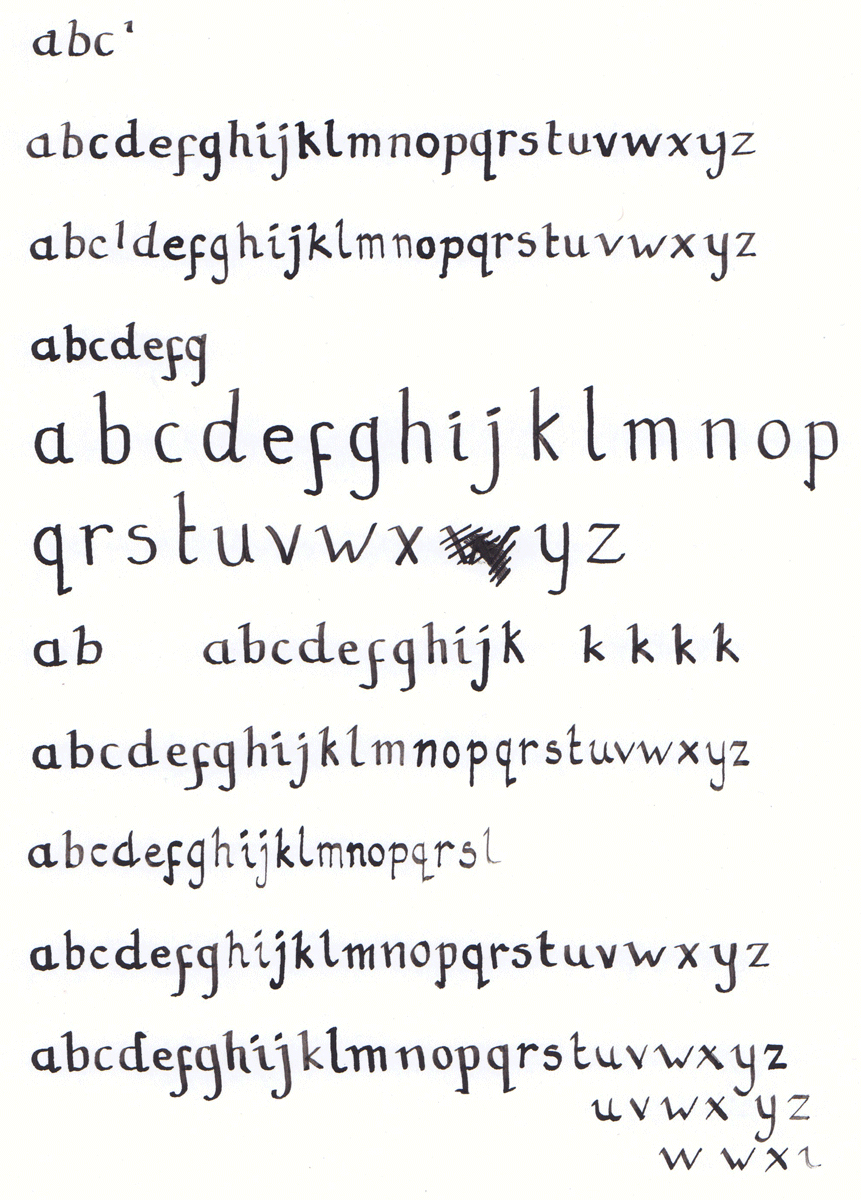 abc
abcdefghijklmnopqrstuvwxyz
abcdefghijklmnopqrstuvwxyz
abcdefg
abcdefghijklmnop
qrstuvwx yz
ab abcdefghijk k k k k
abcdefghijklmnopqrstuvwxyz
abcdefghijklmnopqrs
abcdefghijklmnopqrstuvwxyz
abcdefghijklmnopqrstuvwxyz
uvwx yz
w wx